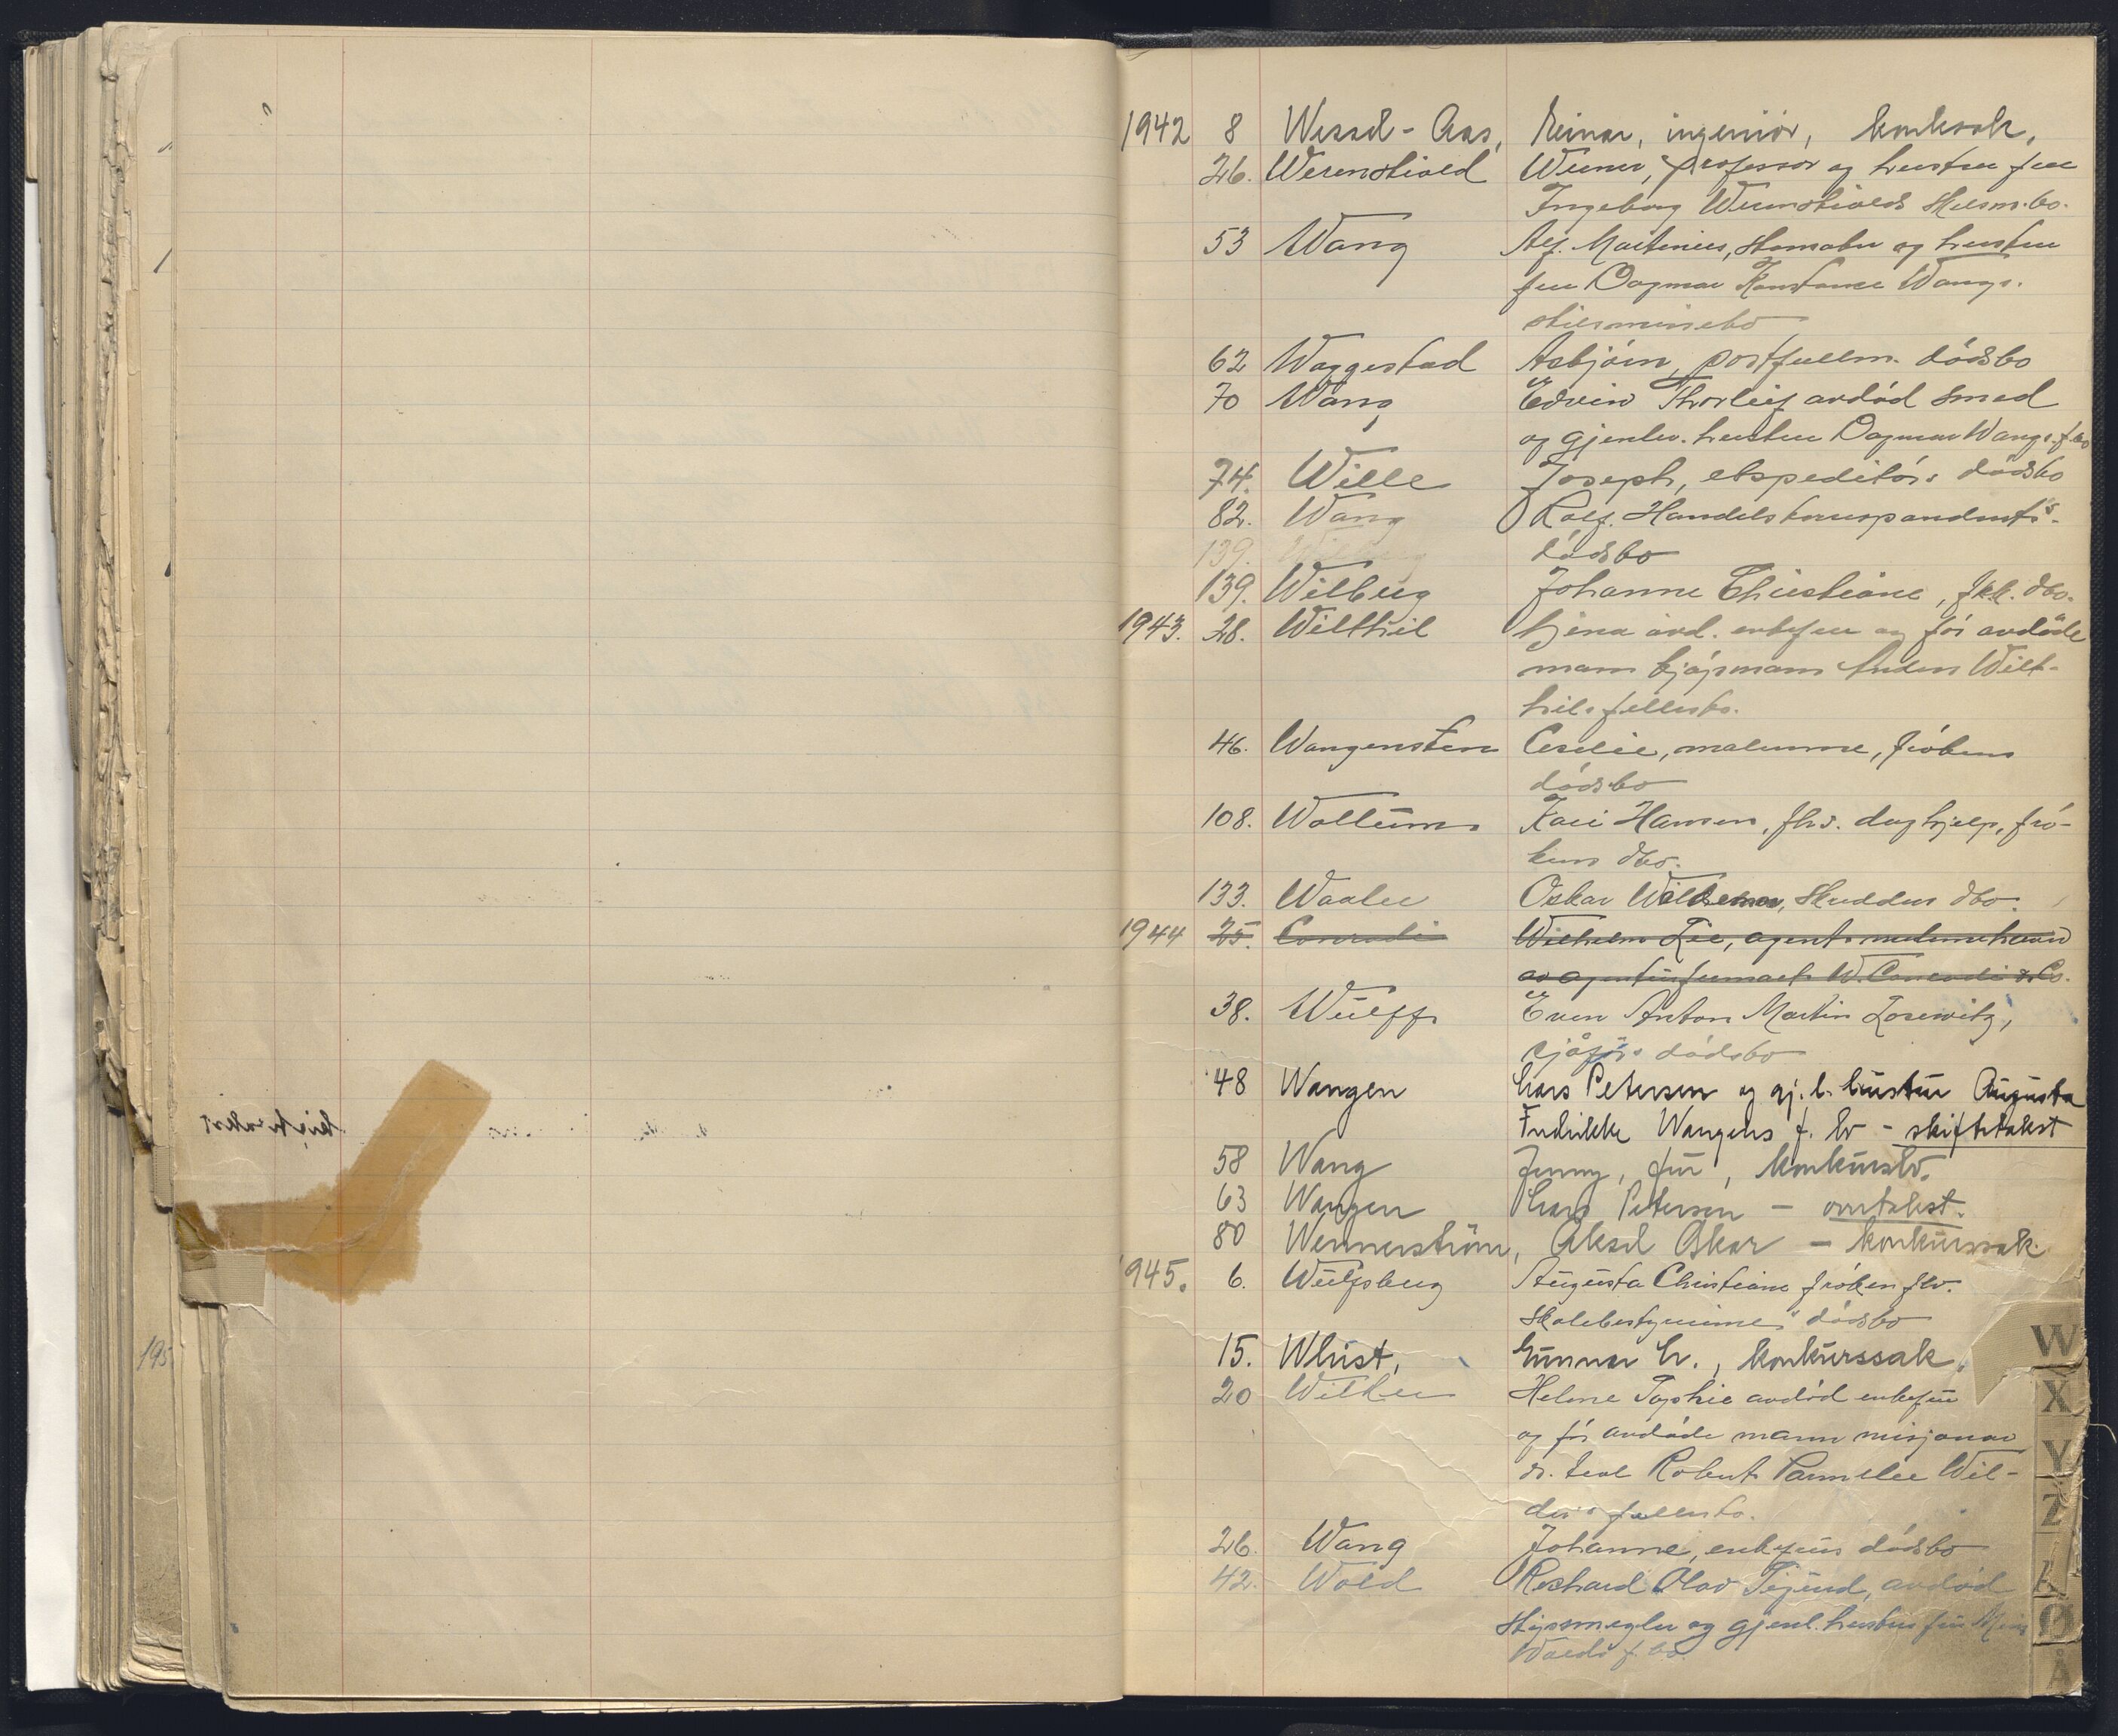 1942 8 Wessel-Aas, Einar, ingeniör, konksak.
26. Werenskiold Werner, professor og hustru fru
Ingeborg Werenskiolds skilsm.bo.
53 Wang Alf. Martinius, skomaker og hustru
fru Dagmar Konstance Wangs.
skilsmissebo
62 Waggestad Asbjörn, postfullm. dödsbo
70 Wang Edvin Thorleif avdöd smed
og gjenlev. hustru Dagmar Wangs f.bo
74. Wille Joseph, ekspeditörs dödsbo
82. Wang Rolf. Handelskorrespondents
139. Wilberg dödsbo
139. Wilberg Johanne Christiane, frk. dbo.
1943. 28. Wilthil avd. enkefru og för avdöde
mann kjöpmann Anders Wilt-
hils fellesbo.
46. Wangensten Cecilie, malerinne, frökens
dödsbo
108. Wollum Kari Hansen, fhv. daghjelp, frö-
kens dbo.
133. Waaler Oskar skredders dbo.
1944 25. Conradi Wilhelm Lie, agent innehaver
av agenturfirmaet W. Conradi & Co.
38. Wulff Even Anton Martin Losewitz,
sjåförs dödsbo
48 Wangen Lars Petersen og gj.l. hustru Augusta
Fredrikke Wangens f. bo - skiftetakst
58 Wang Jenny, fru, konkursbo.
63 Wangen Lars Petersen - overtakst.
80 Wennerström, Aksel Oskar - konkurssak
1945. 6. Wulfsberg Augusta Christiane fröken fhv.
skolebestyrerinnes dödsbo
15. Whist, Gunnar H., konkurssak.
20 Wilder Helene Sophie avdöd enkefru
og för avdöde mann misjonær
dr. teol Robert Parmelee Wil-
ders fellesbo.
26. Wang Johanne, enkefrus dödsbo
42. Wold Richard Olav Sigurd, avdöd
skipsmegler og gjenl. hustru fru
Wolds f. bo.
195
W
X
Y
Z
Æ
Ø
Å